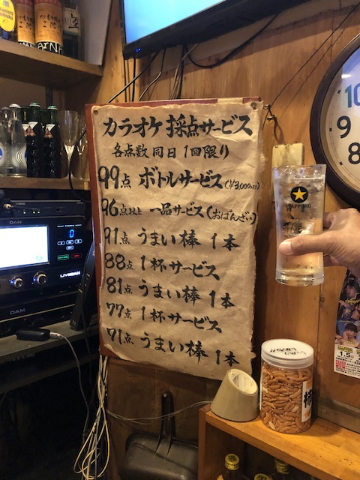 カラオケ採点サービス
各点数同日1回限り
99点 ボトルサービス(¥3,000以下)
96点以上 一品サービス(おばんざい)
91点 うまい棒 1本
88点 1杯サービス
81点 うまい棒 1本
77点 1杯サービス
71点 うまい棒 1本
SAPPORO
10
9
8
7